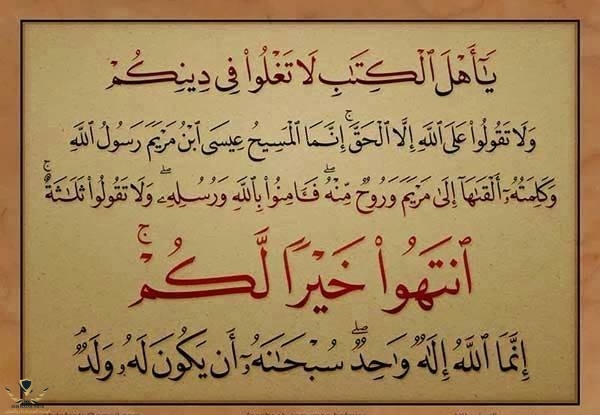 يَٰٓأَهْلَ ٱلْكِتَٰبِ لَا تَغْلُوا۟ فِى دِينِكُمْ
وَلَا تَقُولُوا۟ عَلَى ٱللَّهِ إِلَّا ٱلْحَقَّ ۚ إِنَّمَا ٱلْمَسِيحُ عِيسَى ٱبْنُ مَرْيَمَ رَسُولُ ٱللَّهِ
وَكَلِمَتُهُۥٓ أَلْقَىٰهَآ إِلَىٰ مَرْيَمَ وَرُوحٌ مِّنْهُ ۖ فَـَٔامِنُوا۟ بِٱللَّهِ وَرُسُلِهِۦ ۖ وَلَا تَقُولُوا۟ ثَلَٰثَةٌ ۚ
ٱنتَهُوا۟ خَيْرًا لَّكُمْ ۚ
إِنَّمَا ٱللَّهُ إِلَٰهٌ وَٰحِدٌ ۖ سُبْحَٰنَهُۥٓ أَن يَكُونَ لَهُۥ وَلَدٌ ۘ